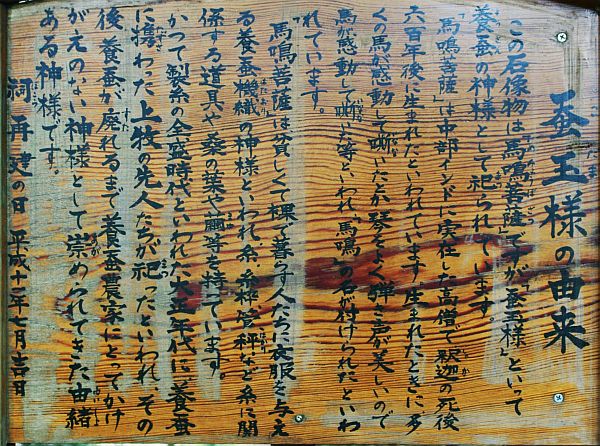 蚕玉様の由来
この石像物は「馬鳴菩薩」ですが「蚕玉様」といって
養蚕の神様として祀られています
「馬鳴菩薩」は中部インドに実在した高僧で釈迦の死後
六百年後に生まれたといわれています 生まれたときに多
くの馬が感動して嘶いたとか琴をよく弾き声が美しいので
馬が感動して嘶いた等といわれ「馬鳴」の名が付けられたといわ
れています。
「馬鳴菩薩」は貧しくて裸で暮す人たちに衣服を与え
る養蚕機織の神様といわれ糸、糸枠管秤など糸に関
係する道具や桑の葉や繭等を持ています。
かつて製糸の全盛時代といわれた大正年代に養蚕
に携わった上牧の先人たちが祀ったといわれ、その
後養蚕が廃れるまで養蚕農家にとってかけ
がえのない神様として崇められてきた由緒
ある神様です。
祠再建の日 平成十年七月吉日